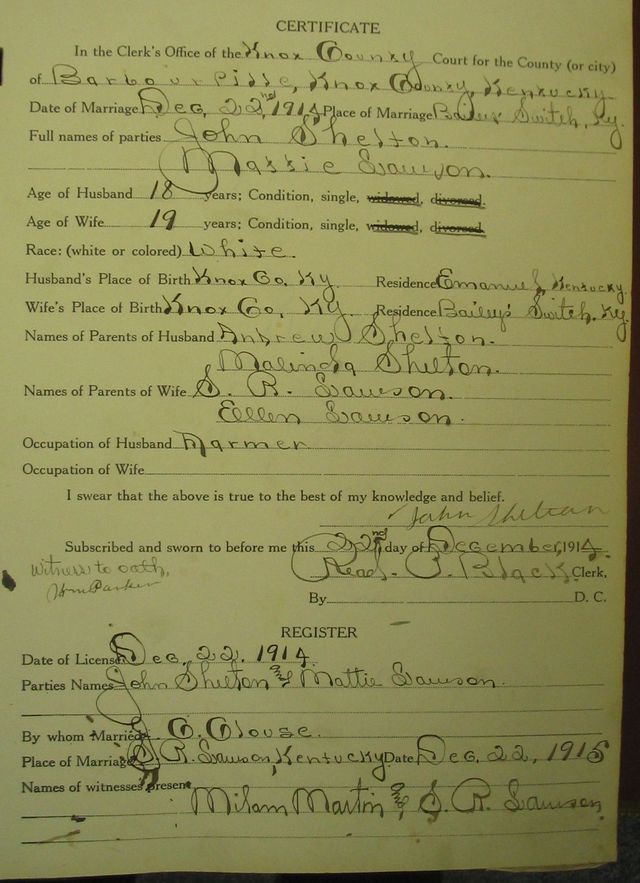 CERTIFICATE
In the Clerk's Office of the Knox County Court for the County (or city)
of Barbourville, Knox County, Kentucky.
Date of Marriage Dec, 22nd, 1914 Place of Marriage Bailey Switch, Ky.
Full names of parties John Shelton.
Mattie Lawson.
Age of Husband 18 years; Condition, single, widowed, divorced.
Age of Wife 19 years; Condition, single, widowed, divorced.
Race: (white or colored) White.
Husband's Place of Birth Knox Co, Ky. Residence Emanuel, Kentucky.
Wife's Place of Birth Knox Co, Ky. Residence Bailey's Switch, Ky.
Names of Parents of Husband Andrew Shelton.
Malinda Shelton.
Names of Parents of Wife S. R. Lawson.
Ellen Lawson.
Occupation of Husband Farmer
Occupation of Wife
I swear that the above is true to the best of my knowledge and belief.
John Sheltan
Subscribed and sworn to before me this 22nd day of December, 1914.
Witness to oath,
Read P. Black Clerk,
Wm Parker
By D. C.
REGISTER
Date of License Dec, 22. 1914.
Parties Names John Shelton & Mattie Lawson.
By whom Married J. C. Clouse.
Place of Marriage S. R. Lawson, Kentucky Date Dec, 22, 1915
Names of witnesses present
Milam Martin & S. R. Lawson,